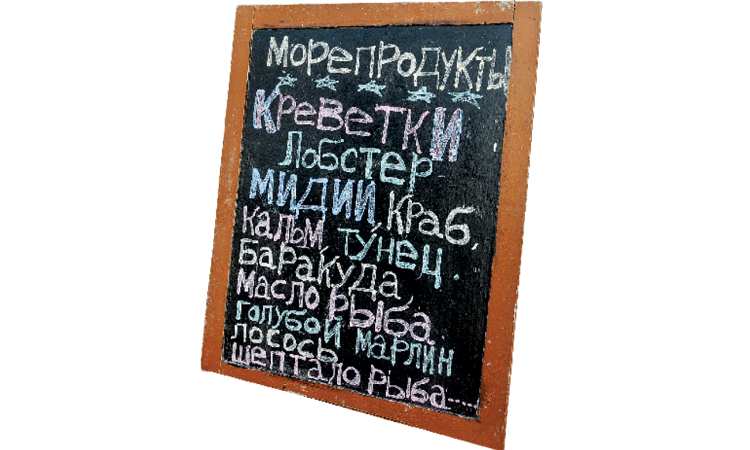 МОРЕПРОДУКТЫ
КРЕВЕТКИ
ЛОБСТЕР
МИДИИ, КРАБ,
КАЛЬМ ТУНЕЦ.
БАРАКУДА
МАСЛО РЫБА.
ГОЛУБОЙ МАРЛИН
ЛОСОСЬ
ШЕПТАЛО РЫБА.....